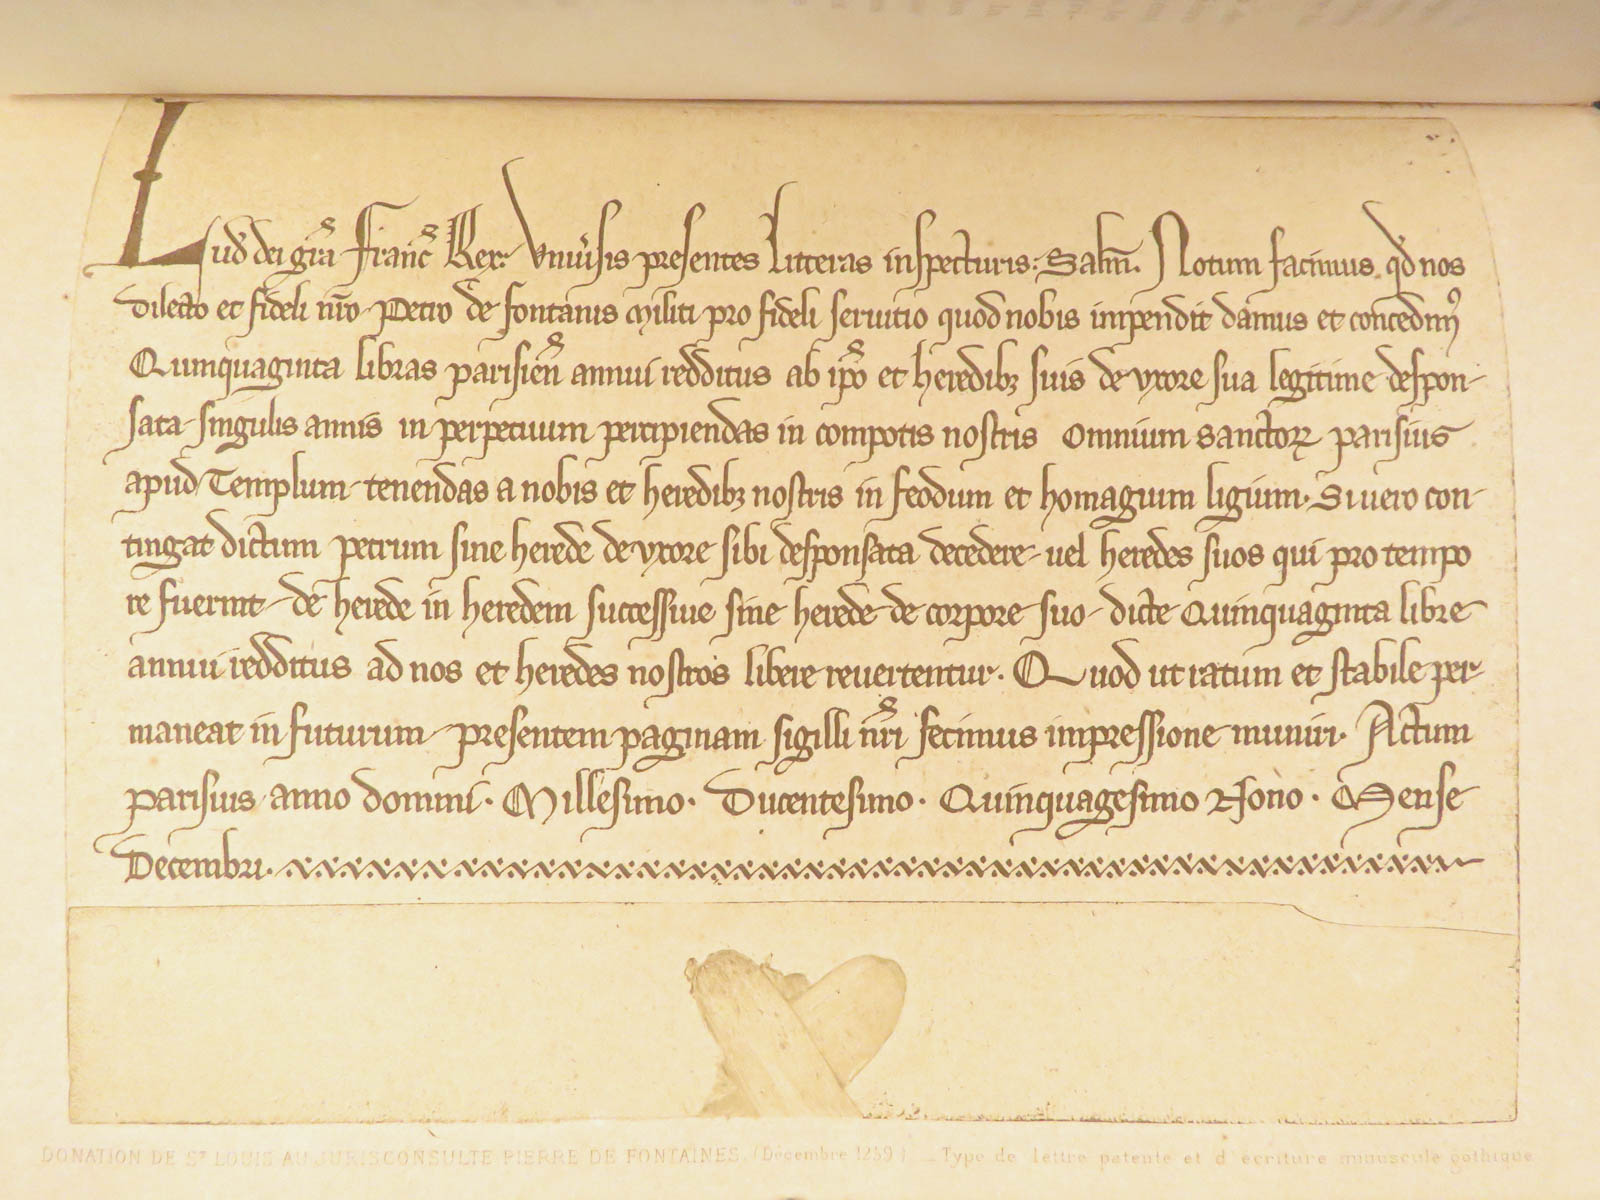 Lud᷑ dei gr̃a Franc̃ Rex. Vniu᷑sis presentes litteras inspecturis: Salm̃. Notum facimus qd̃ nos
dilecto et fideli nr̃o Petro de fontanis Militi pro fideli seruitio quod nobis inpendit damus et concedimꝰ
Quinquaginta libras parisien̄ annui redditus ab ip̃o et heredibꝫ suis de vxore sua legitime despon-
sata singulis annis in perpetuum percipiendas in compotis nostris Omnium sanctoꝝ parisius
apud Templum tenendas a nobis et heredibꝫ nostris in feodum et homagium ligium. Si uero con-
tingat dictum petrum sine herede de vxore sibi desponsata decedere uel heredes suos qui pro tempo
re fuerint de herede in heredem successiue sine herede de corpore suo dicte Quinquaginta libre
annui redditus ad nos et heredes nostros libere reuertentur. Quod ut ratum et stabile per-
maneat in futurum presentem paginam sigilli nr̃i fecimus impressione muniri. Actum
parisius anno domini. Millesimo. Ducentesimo. Quinquagesimo Nono. Mense
Decembri.
DONATION DE ST LOUIS AU JURISCONSULTE PIERRE DE FONTAINES. (Décembre 1259) _ Type de lettre patente et d'écriture minuscule gothique